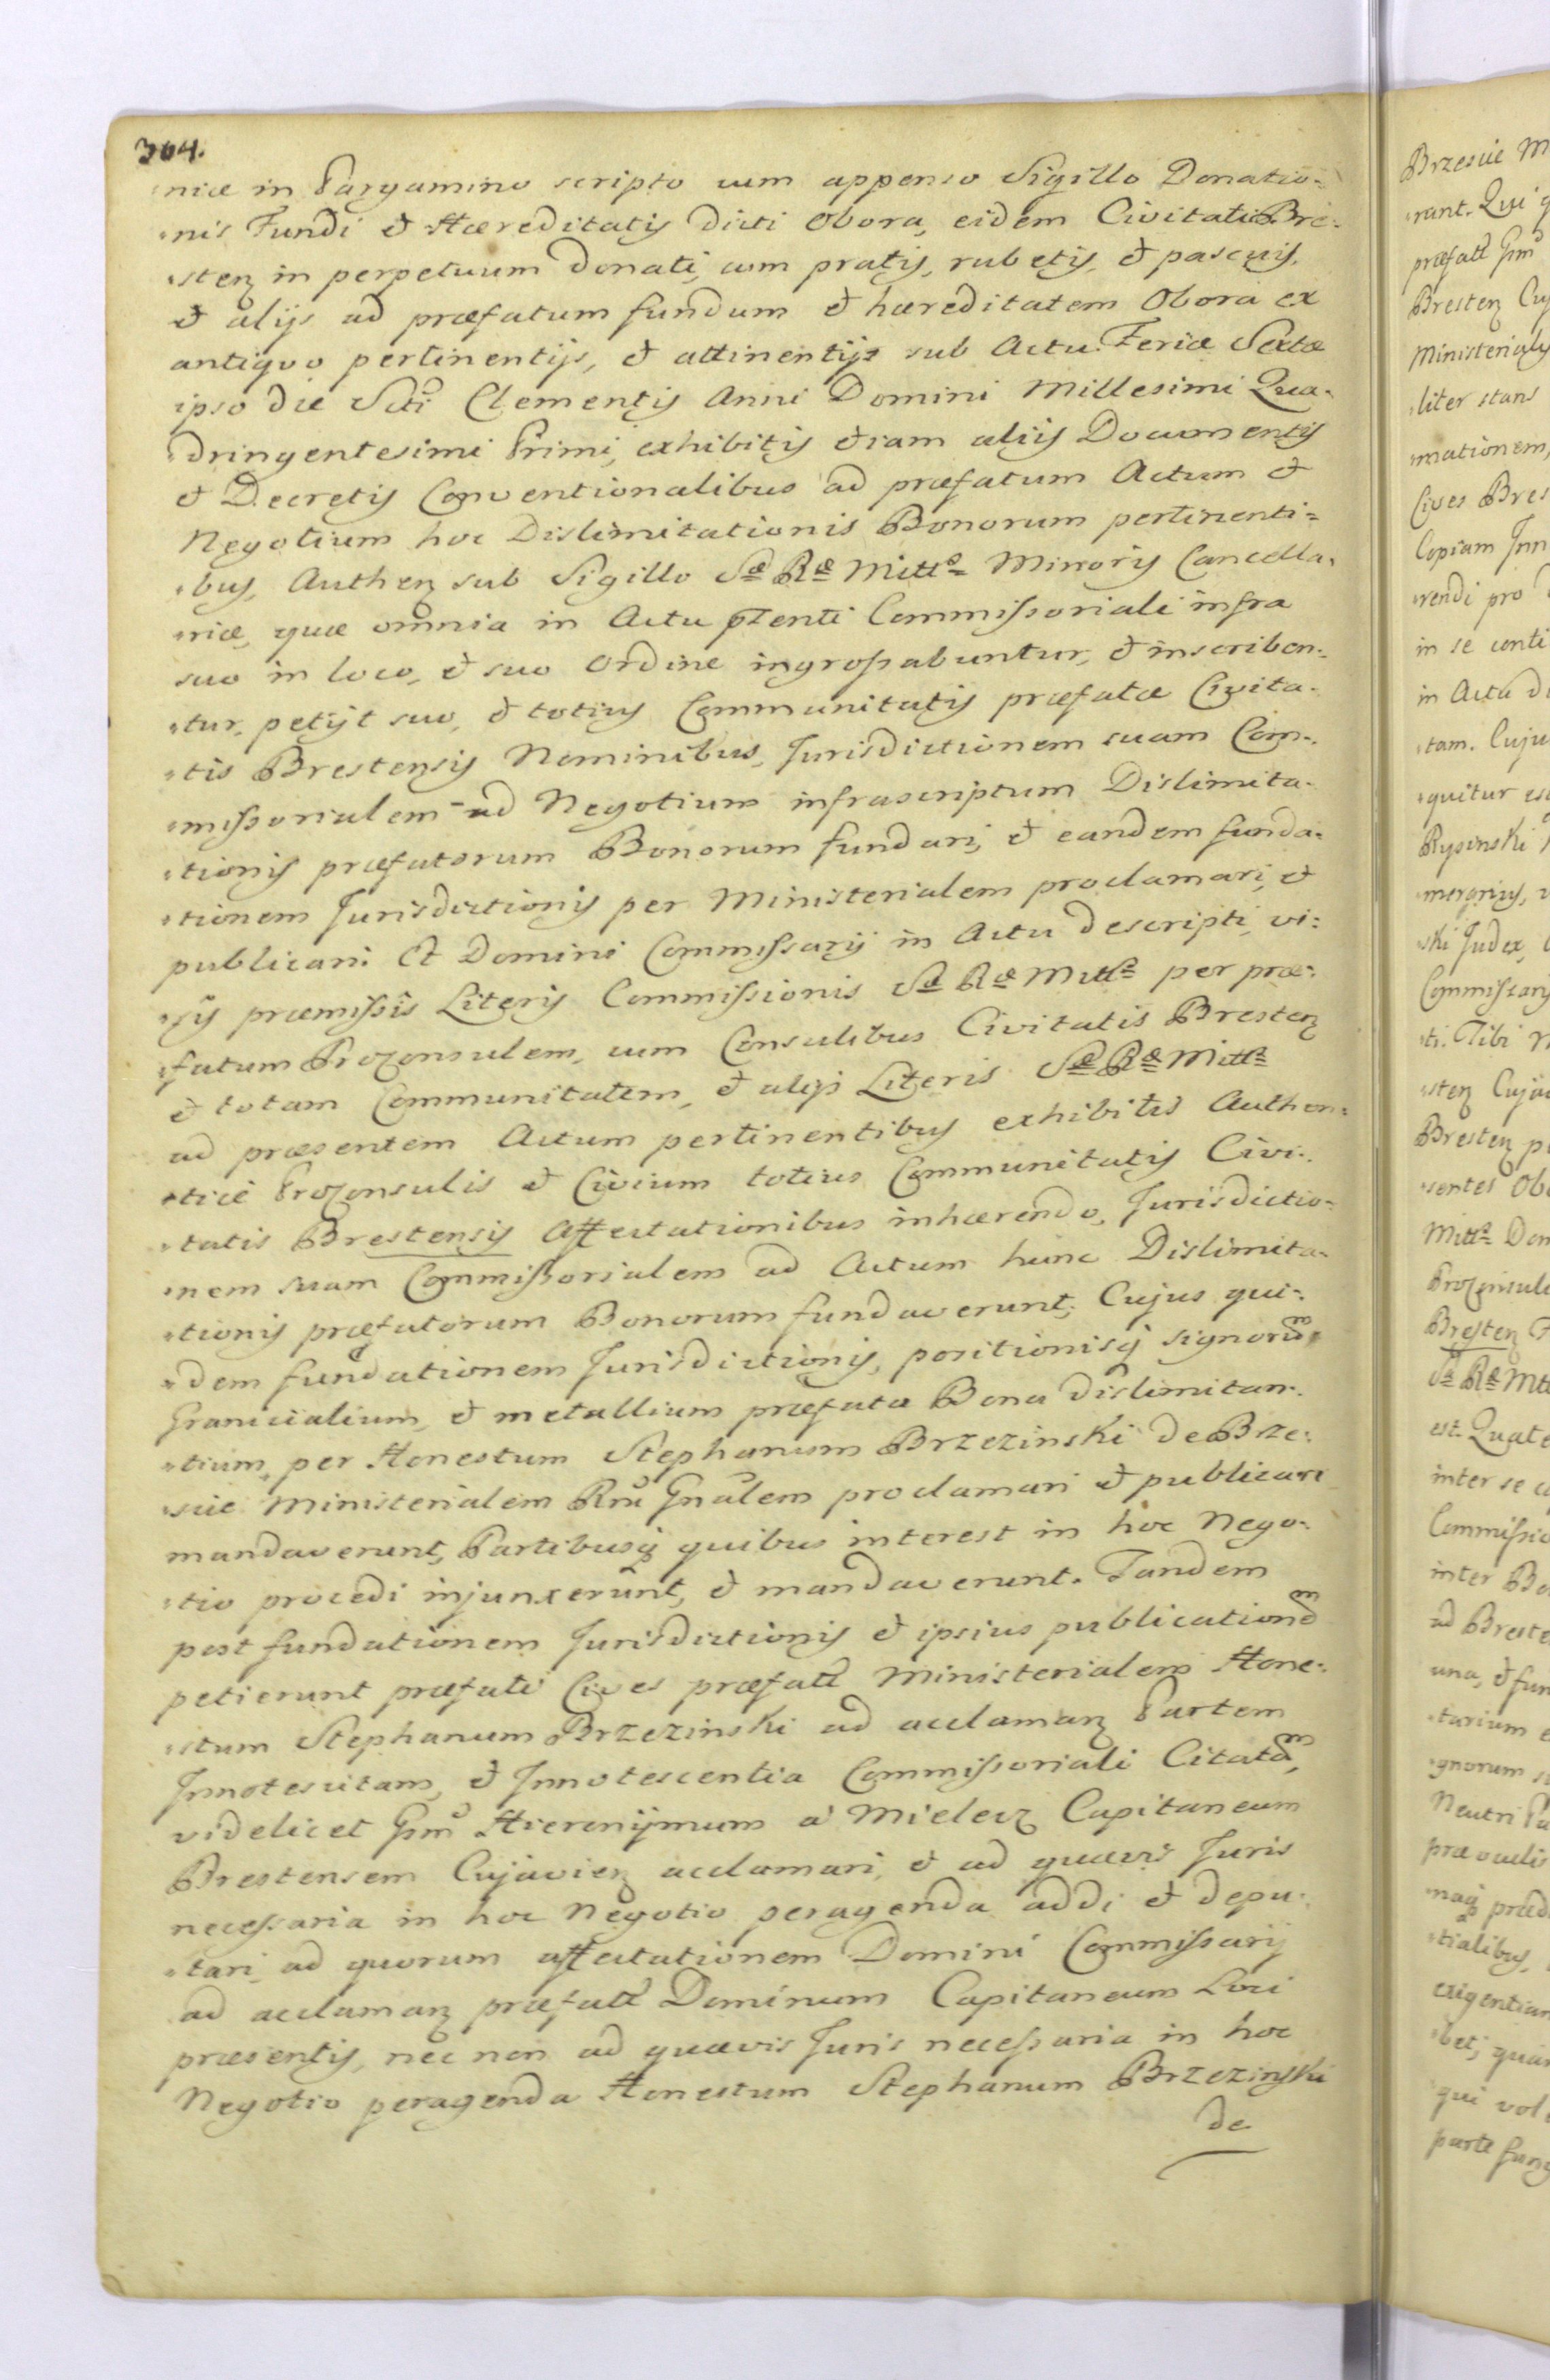 304.
niæ in Pargamino scripto cum appenso Sigillo Donatio-
nis Fundi et Hæreditatis dicti Obora, eidem Civitati Bre-
sten in perpetuum donati, cum pratis, rubetis, et pascuis,
et alijs ad præfatum fundum et hæreditatem Obora ex
antiquo pertinentijs, et attinentijs sub Actu Feriæ Sextæ
ipso die Scti Clementis Anni Domini Millesimi Qua-
dringentesimi Primi, exhibitis etiam alijs Documentis
et Decretis Conventionalibus ad præfatum Actum et
Negotium hoc Dislimitationis Bonorum pertinenti-
bus, Authen sub Sigillo Sæ Ræ Mttis Minoris Cancella-
riæ, quæ omnia in Actu pntenti Commissoriali infra
suo in loco, et suo Ordine ingrossabuntur, et inscriben-
tur, petijt suo, et totius Communitatis præfatæ Civita-
tis Brestensis Nominibus, Jurisdictionem suam Com-
missorialem ad Negotium infrascriptum Dislimita-
tionis præfatorum Bonorum fundari, et eandem funda-
tionem Jurisdictionis per Ministerialem proclamari, et
publicari. Et Domini Commissarij in Actu descripti, vi-
sis præmissis Literis Commissionis Sæ Ræ Mttis per præ-
fatum Prozonsulem, cum Consulibus Civitatis Bresten
et totam Communitatem, et alijs Literis Sæ Ræ Mttis
ad præsentem Actum pertinentibus exhibitis Authen-
tice Prozonsulis et Civium totius Communitatis Civi-
tatis Brestensis Affectationibus inhærendo, Jurisdictio-
nem suam Commissorialem ad Actum hunc Dislimita-
tionis præfatorum Bonorum fundaverunt; Cujus qui-
dem fundationem Jurisdictionis, positionisq signorum
Granicialium, et metallium præfata Bona dislimitan-
tium, per Honestum Stephanum Brzezinski de Brze-
scie Ministerialem Rni Gnalem proclamari et publicari
mandaverunt, Partibusq quibus interest in hoc Nego-
tio procedi injunxerunt, et mandaverunt. Tandem
post fundationem Jurisdictionis et ipsius publicationem
petierunt præfati Cives præfatt Ministerialem Hone-
stum Stephanum Brzezinski ad acclaman Partem
Innotescitam, et Innotescentia Commissoriali Citatam,
videlicet Gnm Hieronijmum a Mielecz Capitaneum
Brestensem Cujavien acclamari, et ad quævis Juris
necessaria in hoc Negotio peragenda addi et depu-
tari, ad quorum affectationem Domini Commissarij
ad acclaman præfatt Dominum Capitaneum Loci
præsentis, nec non ad quævis Juris necessaria in hoc
Negotio peragenda Honestum Stephanum Brzezinski
de
Brzescie M
rant. Qui q
præfatt Gnm
Bresten Cuj
Ministerialis
liter stans
mationem,
Cives Bres
Copiam Inn
rendi pro
in se conti
in Actu di
tam. Cuju
quitur es
Rysinski
ski Judex,
Commissary
ti. Tibi M
sten Cujav
Bresten p
sentes Obo
Mttis Dom
Prozonsule
Bresten F
Sæ Ræ Mtt
est. Quate
inter se c
Commissio
inter Bo
ad Breste
una, et fun
tarium e
gnorum s
Neutri Pa
præ oculis
mag præd
tialibus,
exigentiam
bet, quam
qui vol
parte fung